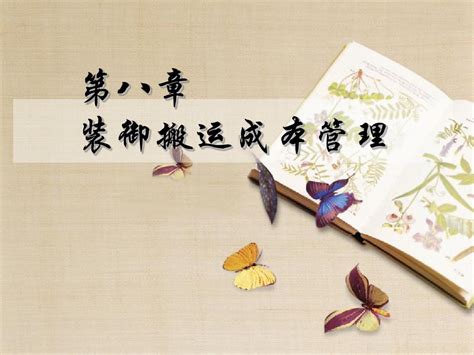 第八章
装御搬运成本管理